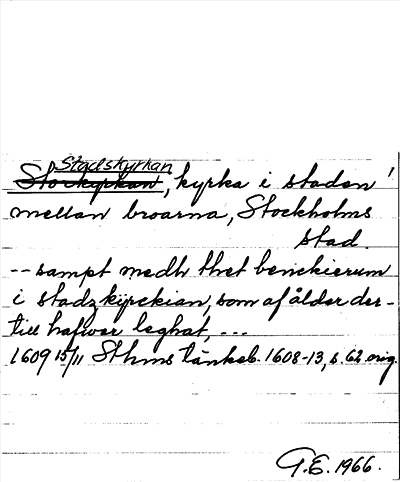 Stadskyrkan
Storkyrkan, kyrka i staden
mellan broarna, Stockholms
stad.
-- sampt medh thet benekierum
i stadzkyrckian, som af ålder der-
till hafwer leghat, ...
1609 15/11 Sthms tänkeb. 1608-13, s. 62 orig.
G.E. 1966.